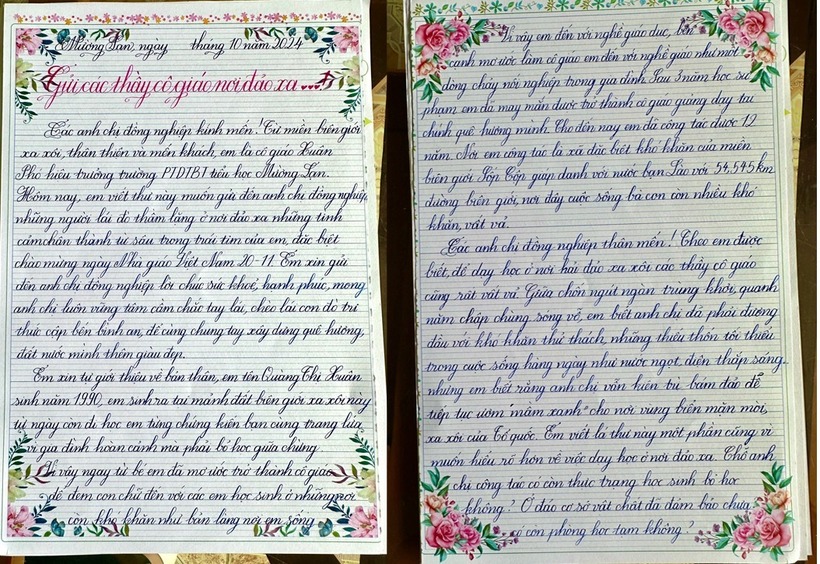 Mường Lạn, ngày tháng 10 năm 2024
Gửi các thầy cô giáo nơi đảo xa
Các anh chị đồng nghiệp kính mến! Từ miền biên giới
xa xôi, thân thiện và mến khách, em là cô giáo Xuân
Phó hiệu trưởng trường PTDTBT tiểu học Mường Lạn.
Hôm nay, em viết thư này muốn gửi đến anh chị đồng nghiệp,
những người lái đò thầm lặng ở nơi đảo xa những tình
cảm chân thành từ sâu trong trái tim của em, đặc biệt
chào mừng ngày Nhà giáo Việt Nam 20-11. Em xin gửi
đến anh chị đồng nghiệp lời chúc sức khoẻ, hạnh phúc, mong
anh chị luôn vững tâm cầm chắc tay lái, chèo lái con đò tri
thức cập bến bình an, để cùng chung tay xây dựng quê hương,
đất nước mình thêm giàu đẹp.
Em xin tự giới thiệu về bản thân, em tên Quàng Thị Xuân
sinh năm 1990, em sinh ra tại mảnh đất biên giới xa xôi này
từ ngày còn đi học em từng chứng kiến bạn cùng trang lứa
vì gia đình hoàn cảnh mà phải bỏ học giữa chừng
Vì vậy ngay từ bé em đã mơ ước trở thành cô giáo
để đem con chữ đến với các em học sinh ở những nơi
còn khó khăn như bản làng nơi em sống
Vì vậy em đến với nghề giáo dục, bên
cạnh mơ ước làm cô giáo em đến với nghề giáo như một
dòng chảy nối nghiệp trong gia đình. Sau 3 năm học sư
phạm em đã may mắn được trở thành cô giáo giảng dạy tại
chính quê hương mình. Cho đến nay em đã công tác được 12
năm. Nơi em công tác là xã đặc biệt khó khăn của miền
biên giới Sốp Cộp giáp danh với nước bạn Lào với 54,545 km
đường biên giới, nơi đây cuộc sống bà con còn nhiều khó
khăn, vất vả.
Các anh chị đồng nghiệp thân mến! Theo em được
biết, để dạy học ở nơi hải đảo xa xôi các thầy cô giáo
cũng rất vất vả. Giữa chốn ngút ngàn trùng khơi, quanh
năm chập chùng sóng vỗ, em biết anh chị đã phải đương
đầu với khó khăn thử thách, những thiếu thốn tối thiểu
trong cuộc sống hàng ngày như nước ngọt, điện thắp sáng...
nhưng em biết rằng anh chị vẫn kiên trì bám đảo để
tiếp tục ươm "mầm xanh" cho nơi vùng biển mặn mòi,
xa xôi của Tổ quốc. Em viết lá thư này một phần cũng vì
muốn hiểu rõ hơn về việc dạy học ở nơi đảo xa. Chỗ anh
chị công tác có còn thực trạng học sinh bỏ học
không? Ở đảo cơ sở vật chất đã đảm bảo chưa
có còn phòng học tạm không?